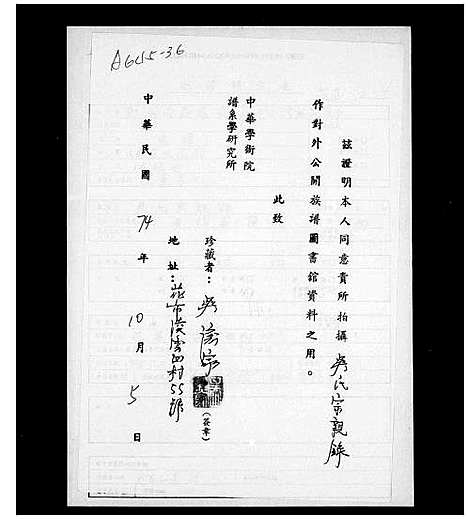 A645-36
茲證明本人同意貴所拍攝吳氏宗親錄
作對外公開族譜圖書館資料之用。
此致
中華學術院
譜系學研究所
珍藏者：吳
(簽章)
地址：村55號
中華民國74年10月5日